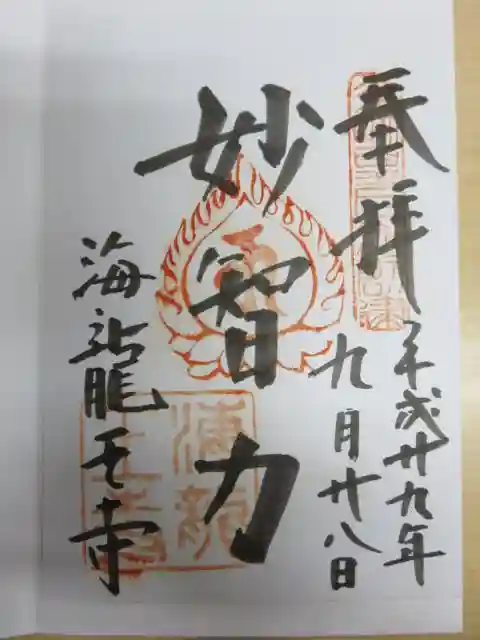 奉拝
平成廿九年
九月廿八日
妙智力
海龍王寺